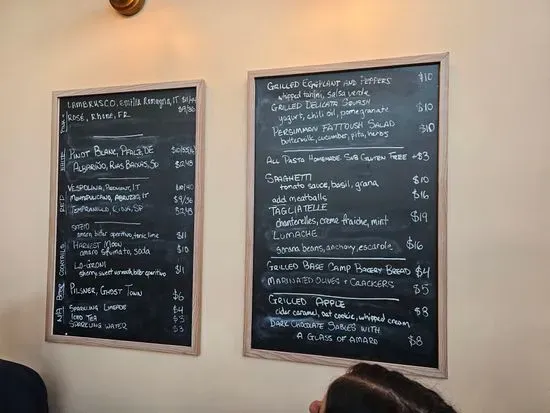 PINK
LAMBRUSCO, Emilia Romagna, IT
$9/36
ROSÉ, Rhone, FR
WHITE
PINOT BLANC, PFALZ, DE
ALBARIÑO, RIAS BAIXAS, SP
RED
VESPOLINA, PIEDMONT, IT $10/40
MONTEPULCIANO, ABRUZZO, IT $9/36
TEMPRANILLO, SP
COCKTAILS
amaro, bitter aperitivo, tonic, lime $11
HARVEST MOON
amaro sfumato, soda $10
LO-GRONI
sherry, sweet vermouth, bitter aperitivo $11
BEER
PILSNER, GHOST TOWN $6
N/A
SPARKLING LIMEADE $4
ICED TEA $3
SPARKLING WATER $3
GRILLED EGGPLANT AND PEPPERS $10
whipped tahini, salsa verde
GRILLED DELICATA SQUASH
yogurt, chili oil, pomegranate $10
PERSIMMON FATTOUSH SALAD $10
buttermilk, cucumber, pita, herbs
ALL PASTA HOMEMADE SUB GLUTEN FREE +$3
SPAGHETTI $10
tomato sauce, basil, grana
add meatballs $16
TAGLIATELLE
chanterelles, creme fraiche, mint $19
LUMACHE
sorana beans, anchovy, escarole $16
GRILLED BASE CAMP BAKERY BREAD $4
MARINATED OLIVES + CRACKERS $5
GRILLED APPLE
cider caramel, oat cookie, whipped cream $8
DARK CHOCOLATE SABLES WITH
A GLASS OF AMARO $8